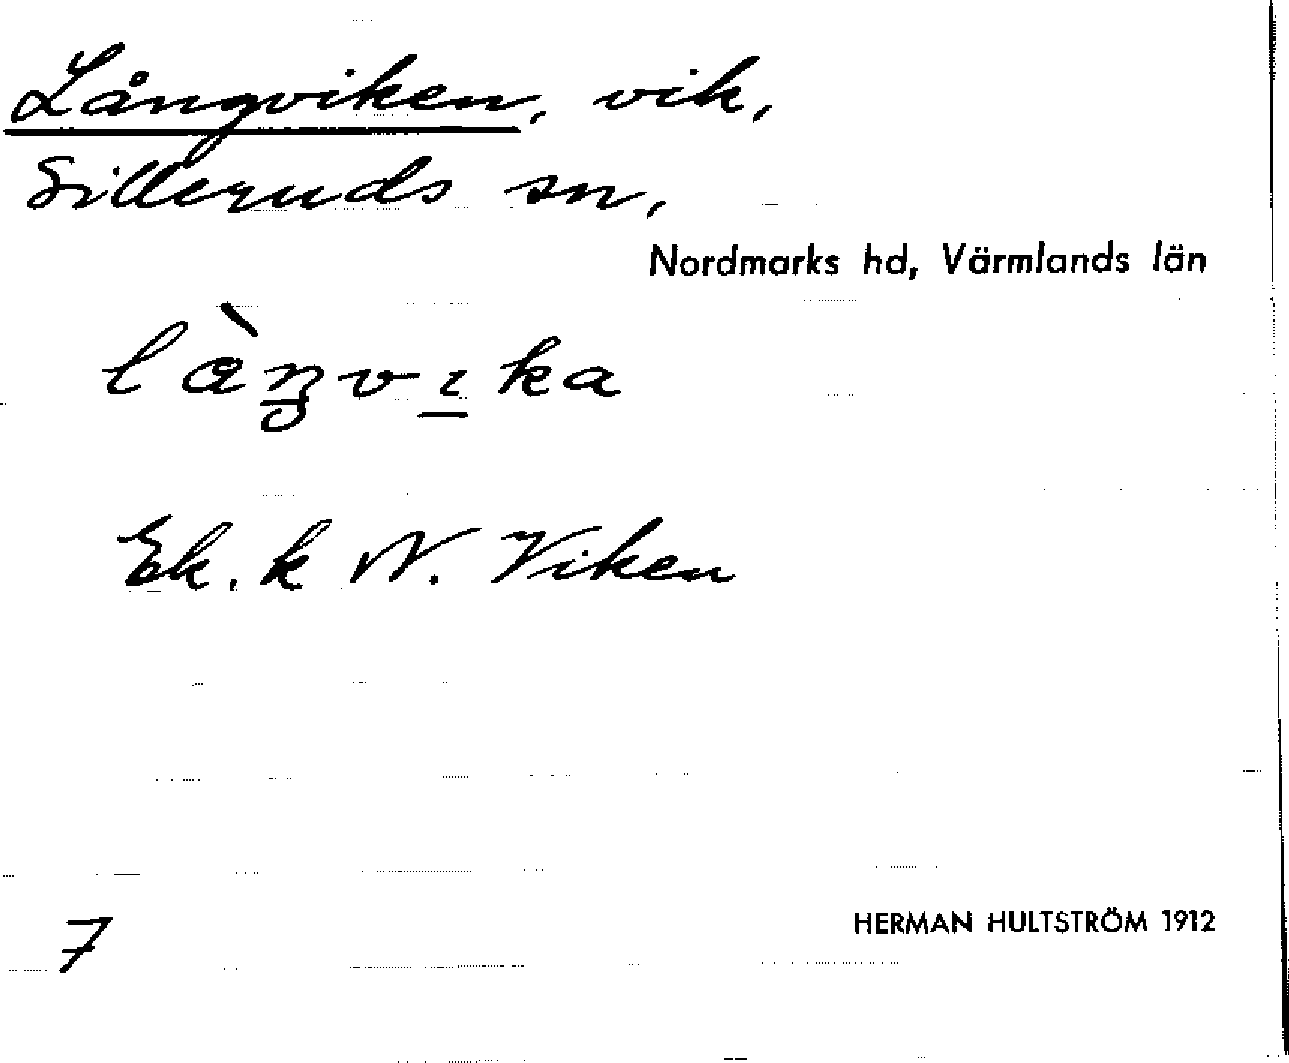 Långviken, vik,
Silleruds sn,
Nordmarks hd, Värmlands län
làŋvı̲ka
Ek. k N. Viken
7
HERMAN HULTSTRÖM 1912